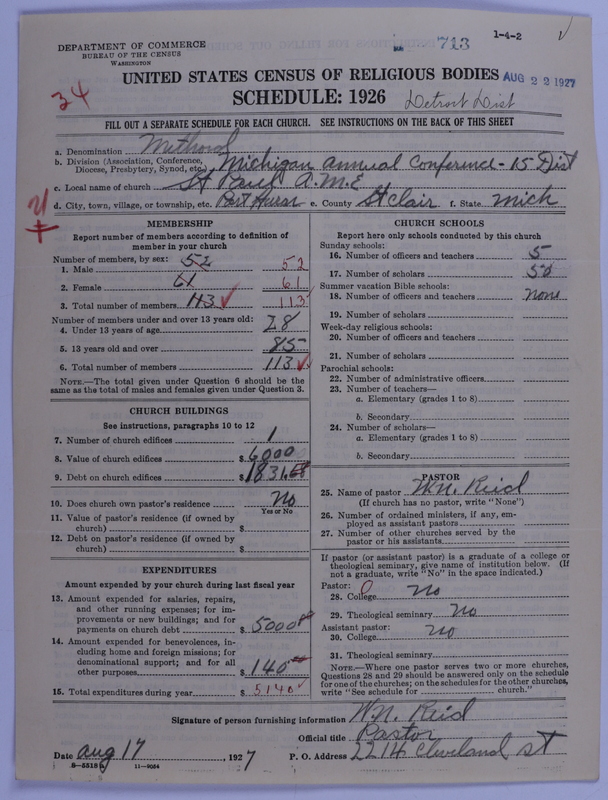 1-4-2
713
DEPARTMENT OF COMMERCE
BUREAU OF THE CENSUS
WASHINGTON
UNITED STATES CENSUS OF RELIGIOUS BODIES AUG 22 1927
34
SCHEDULE: 1926 Detroit Dist
FILL OUT A SEPARATE SCHEDULE FOR EACH CHURCH. SEE INSTRUCTIONS ON THE BACK OF THIS SHEET
a. Denomination Methodist
b. Division (Association, Conference, Diocese, Presbytery, Synod, etc.) Michigan Annual Conference - 15 Dist
c. Local name of church St Paul A.M.E
d. City, town, village, or township, etc. Port Huron e. County St Clair f. State Mich
MEMBERSHIP
Report number of members according to definition of
member in your church
Number of members, by sex:
1. Male 52 52
2. Female 61 61
3. Total number of members 113 113
Number of members under and over 13 years old:
4. Under 13 years of age 28
5. 13 years old and over 85
6. Total number of members 113
NOTE.—The total given under Question 6 should be the
same as the total of males and females given under Question 3.
CHURCH BUILDINGS
See instructions, paragraphs 10 to 12
7. Number of church edifices 1
8. Value of church edifices $ 6000
9. Debt on church edifices $ 1831.68
10. Does church own pastor's residence No
Yes or No
11. Value of pastor's residence (if owned by
church) $
12. Debt on pastor's residence (if owned by
church) $
EXPENDITURES
Amount expended by your church during last fiscal year
13. Amount expended for salaries, repairs,
and other running expenses; for im-
provements or new buildings; and for
payments on church debt $ 5000 00
14. Amount expended for benevolences, in-
cluding home and foreign missions; for
denominational support; and for all
other purposes $ 140 00
15. Total expenditures during year $ 5140
CHURCH SCHOOLS
Report here only schools conducted by this church
Sunday schools:
16. Number of officers and teachers 5
17. Number of scholars 50
Summer vacation Bible schools:
18. Number of officers and teachers none
19. Number of scholars
Week-day religious schools:
20. Number of officers and teachers
21. Number of scholars
Parochial schools:
22. Number of administrative officers
23. Number of teachers—
a. Elementary (grades 1 to 8)
b. Secondary
24. Number of scholars—
a. Elementary (grades 1 to 8)
b. Secondary
PASTOR
25. Name of pastor W.N. Reid
(If church has no pastor, write "None")
26. Number of ordained ministers, if any, em-
ployed as assistant pastors
27. Number of other churches served by the
pastor or his assistants
If pastor (or assistant pastor) is a graduate of a college or
theological seminary, give name of institution below. (If
not a graduate, write "No" in the space indicated.)
Pastor:
28. College No
29. Theological seminary No
Assistant pastor:
30. College No
31. Theological seminary
NOTE.—Where one pastor serves two or more churches,
Questions 28 and 29 should be answered only on the schedule
for one of the churches; on the schedules for the other churches,
write "See schedule for church."
Signature of person furnishing information W.N. Reid
Official title Pastor
Date Aug 17, 1927 P. O. Address 2214 Cleveland St
8-5518 a 11-9064